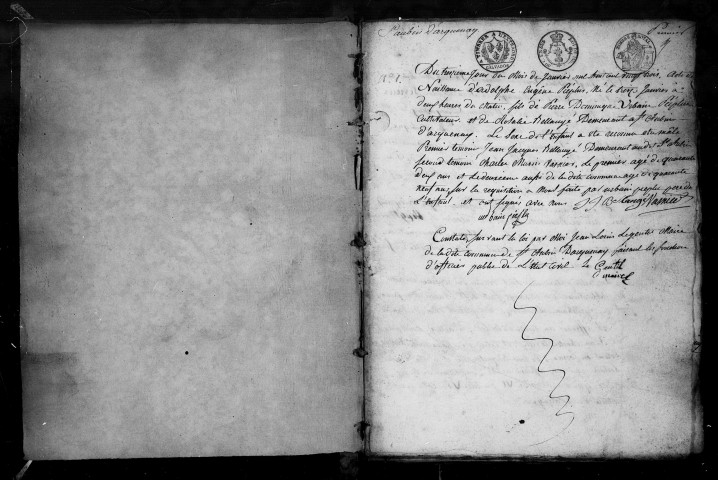 St aubin d'arquenay
Premier
N° 1er
Du treizieme jour du Mois de Janvier mil huit cent vingt trois, Acte de
Naissance d'adolphe Eugène Né le Janvier à
deux heures du matin, fils de Pierre Dominique Urbain
Cultivateur et de Rosalie Bellaugé Demeurant a St Aubin
d'arquenay. Le Sexe de l'Enfant a été reconnu etre mâle
Premier temoin Jean Jacques Bellaugé Demeurant audit St Aubin
Second temoin Charles Marie Varnier, le premier agé de quarante
deux ans et le deuxieme aussi de la dite commune agé de quarante
neuf ans sur la requisition a Nous faite par urbain père de
L'Enfant. et ont signés avec nous J J Bellaugé Varnier
urbain
Constaté, suivant la loi par Moi Jean Louis Legentil Maire
de la dite commune de St Aubin Darquenay faisant les fonctions
d'officier public de L'Etat Civil. Le Gentil
maire